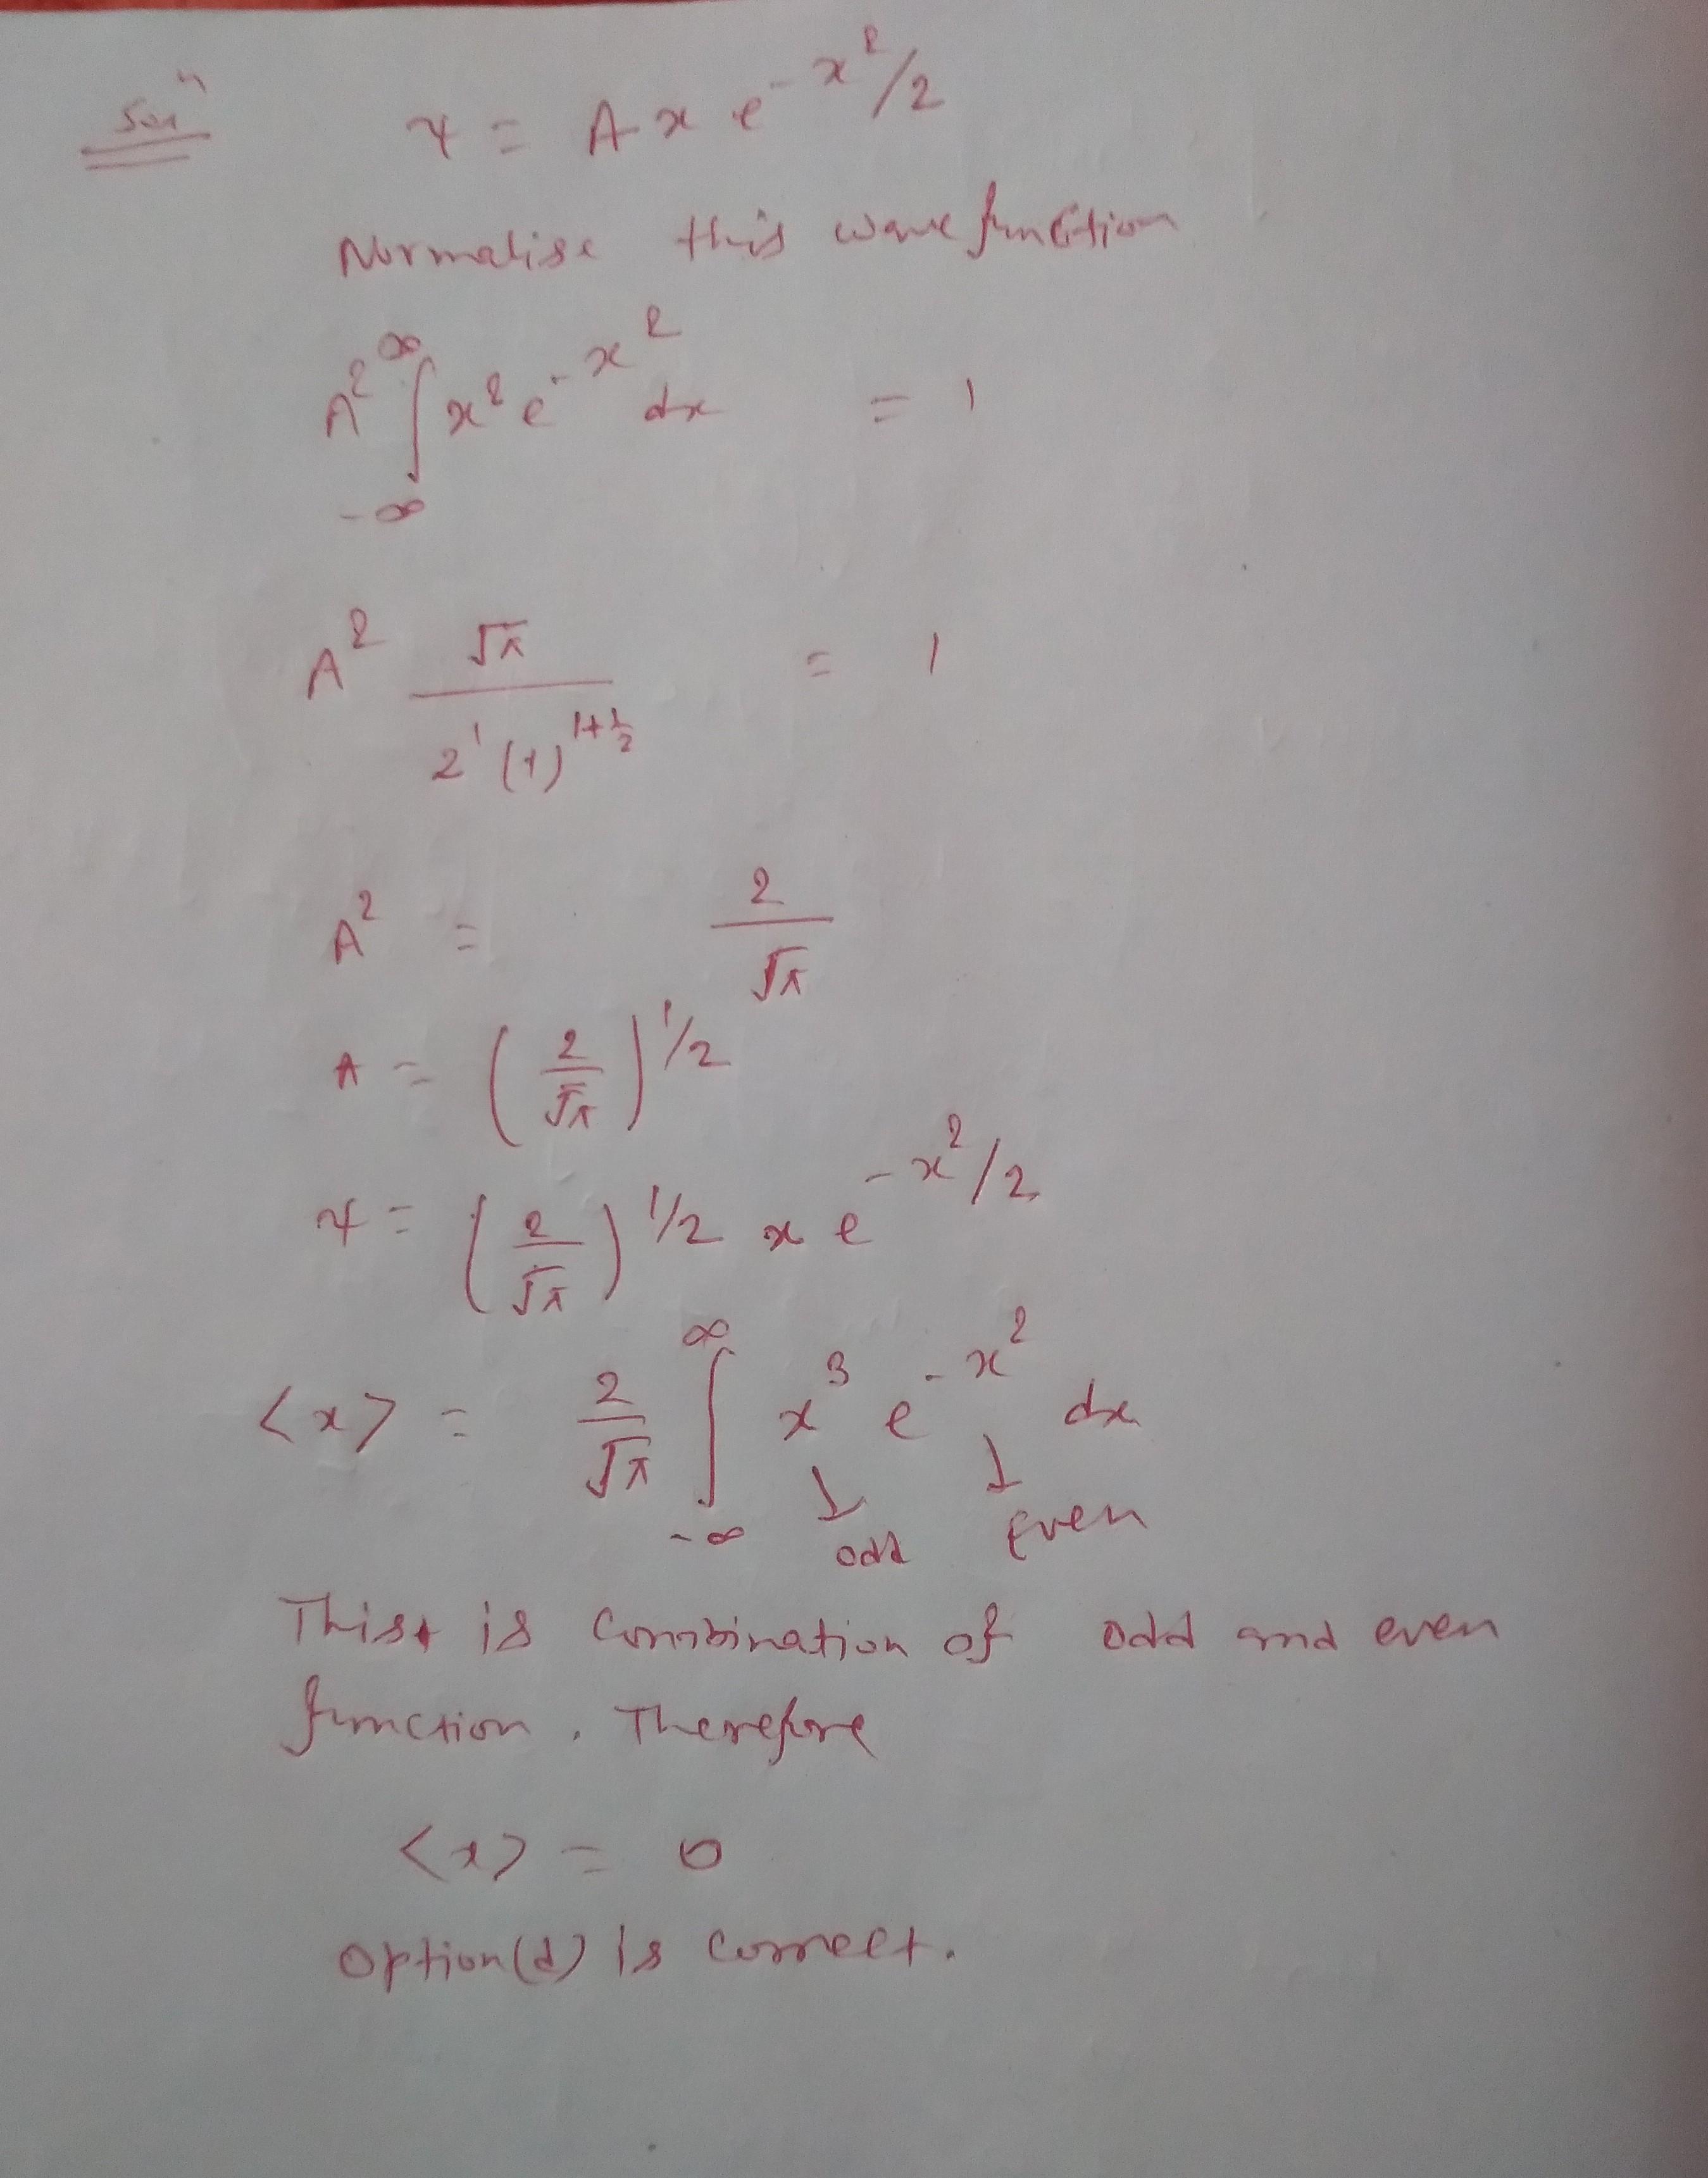 Solⁿ ψ = A x e^{-x²/2}
Normalise this wave function
A² ∫_{-∞}^{∞} x² e^{-x²} dx = 1
A² √π / (2¹ (1)^{1+½}) = 1
A² = 2/√π
A = (2/√π)^{1/2}
ψ = (2/√π)^{1/2} x e^{-x²/2}
<x> = 2/√π ∫_{-∞}^{∞} x³ e^{-x²} dx
↓ ↓
odd even
This is combination of odd and even
function. Therefore
<x> = 0
Option(d) is correct.